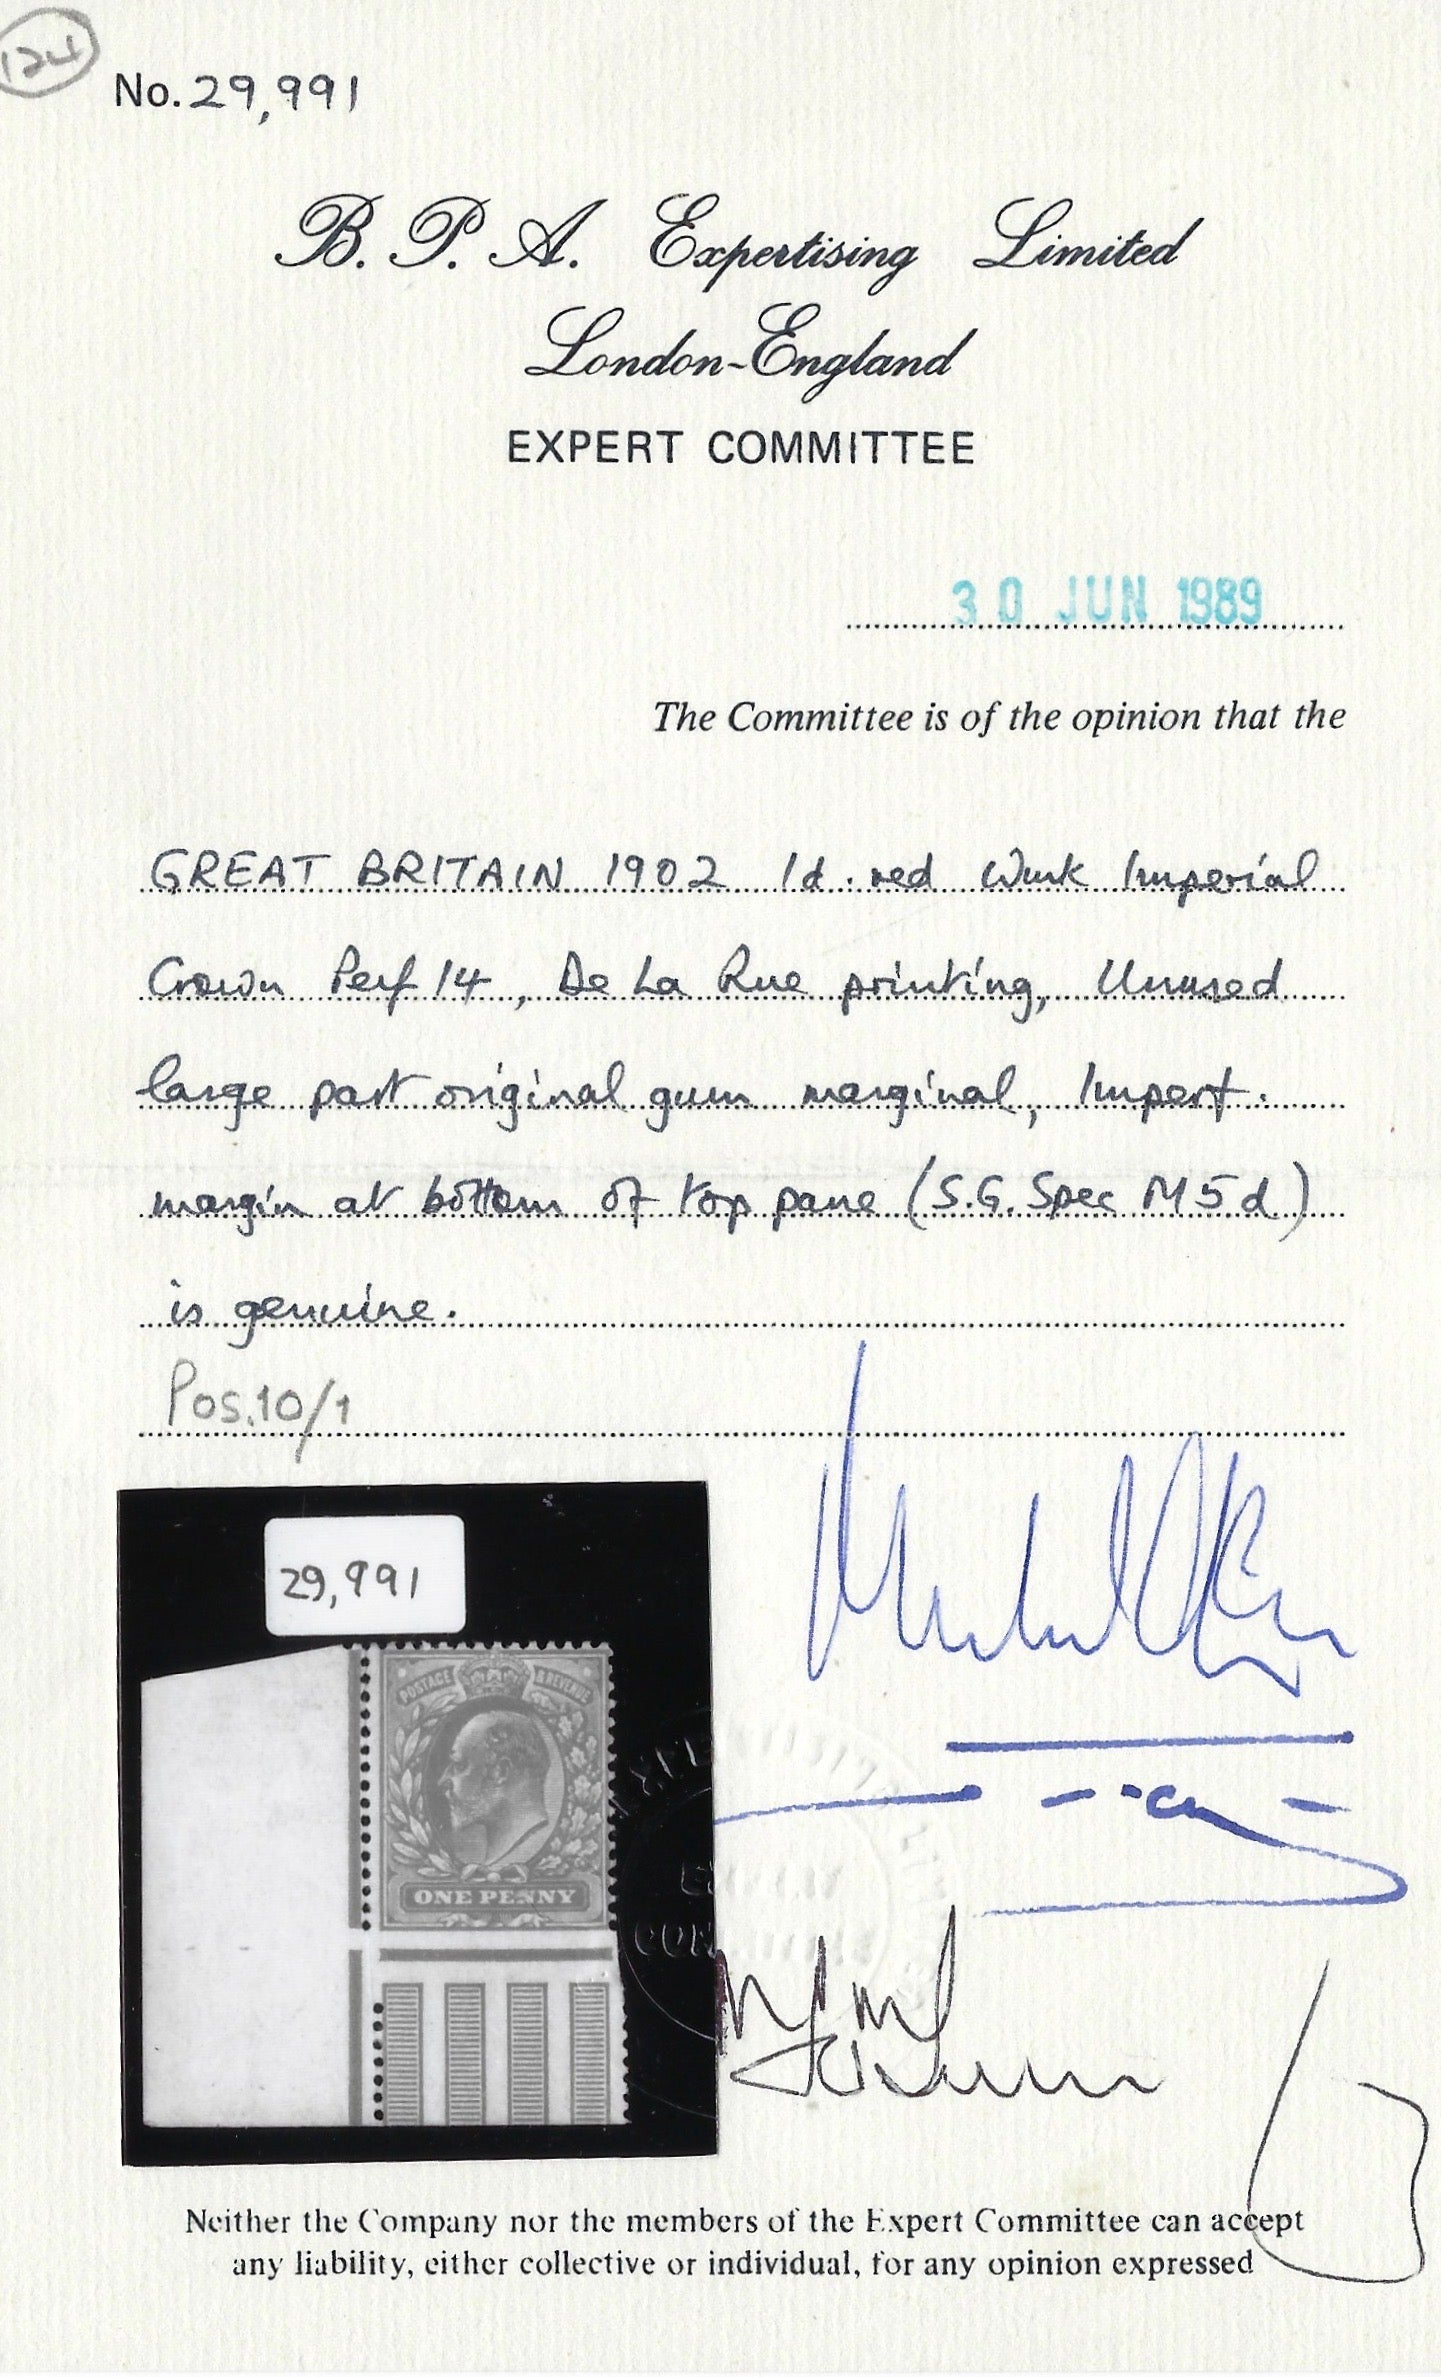 124
No. 29,991
B. P. A. Expertising Limited
London-England
EXPERT COMMITTEE
30 JUN 1989
The Committee is of the opinion that the
GREAT BRITAIN 1902 1d. red Wmk Imperial
Crown Perf 14, De La Rue printing, Unused
large part original gum marginal, Imperf.
margin at bottom of top pane (S.G. Spec M5d)
is genuine.
Pos. 10/1
29,991
POSTAGE & REVENUE
ONE PENNY
Neither the Company nor the members of the Expert Committee can accept
any liability, either collective or individual, for any opinion expressed